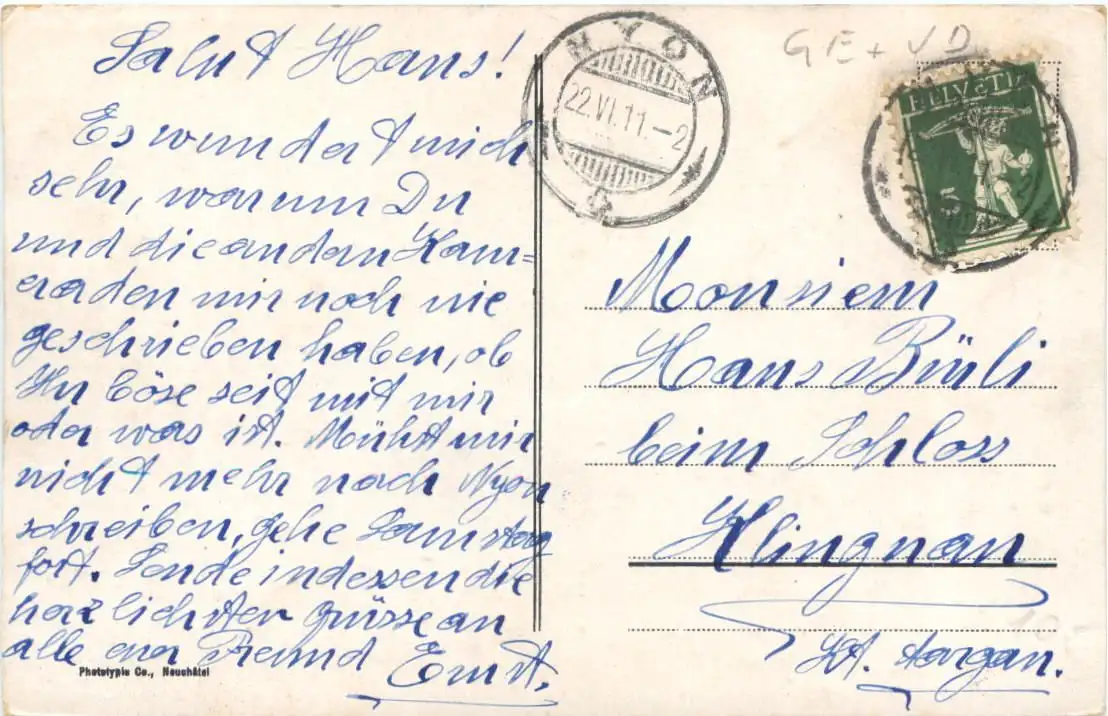 Salut Hans!
Es wundert mich
sehr, warum Du
und die andern Kam=
eraden mir noch nie
geschrieben haben, ob
Ihr böse seit mit mir
oder was ist. Müsst mir
nicht mehr nach Nyon
schreiben, gehe Samstag
fort. Sende indessen die
herzlichsten Grüsse an
alle euer Freund
Ernst.
Phototypie Co., Neuchâtel
NYON
22.VI.11.–2
GE + VD
HELVETIA
5
Monsieur
Hans Bürli
beim Schloss
Klingnau
Kt. Aargau.